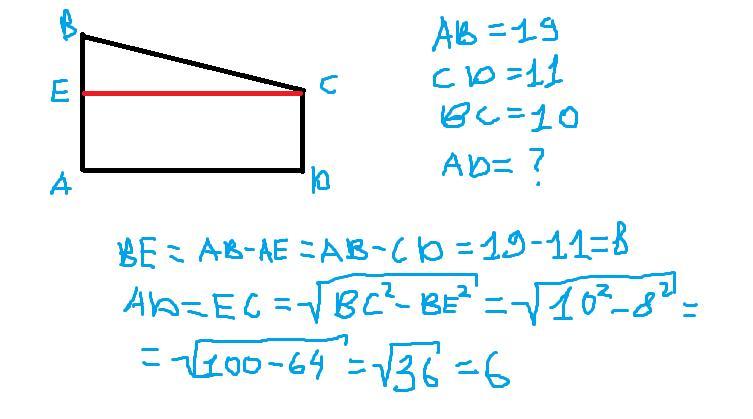 B
E
C
A
D
AB = 19
CD = 11
BC = 10
AD = ?
BE = AB-AE = AB-CD = 19-11=8
AD = EC = √(BC²-BE²) = √(10²-8²) =
= √(100-64) = √36 = 6